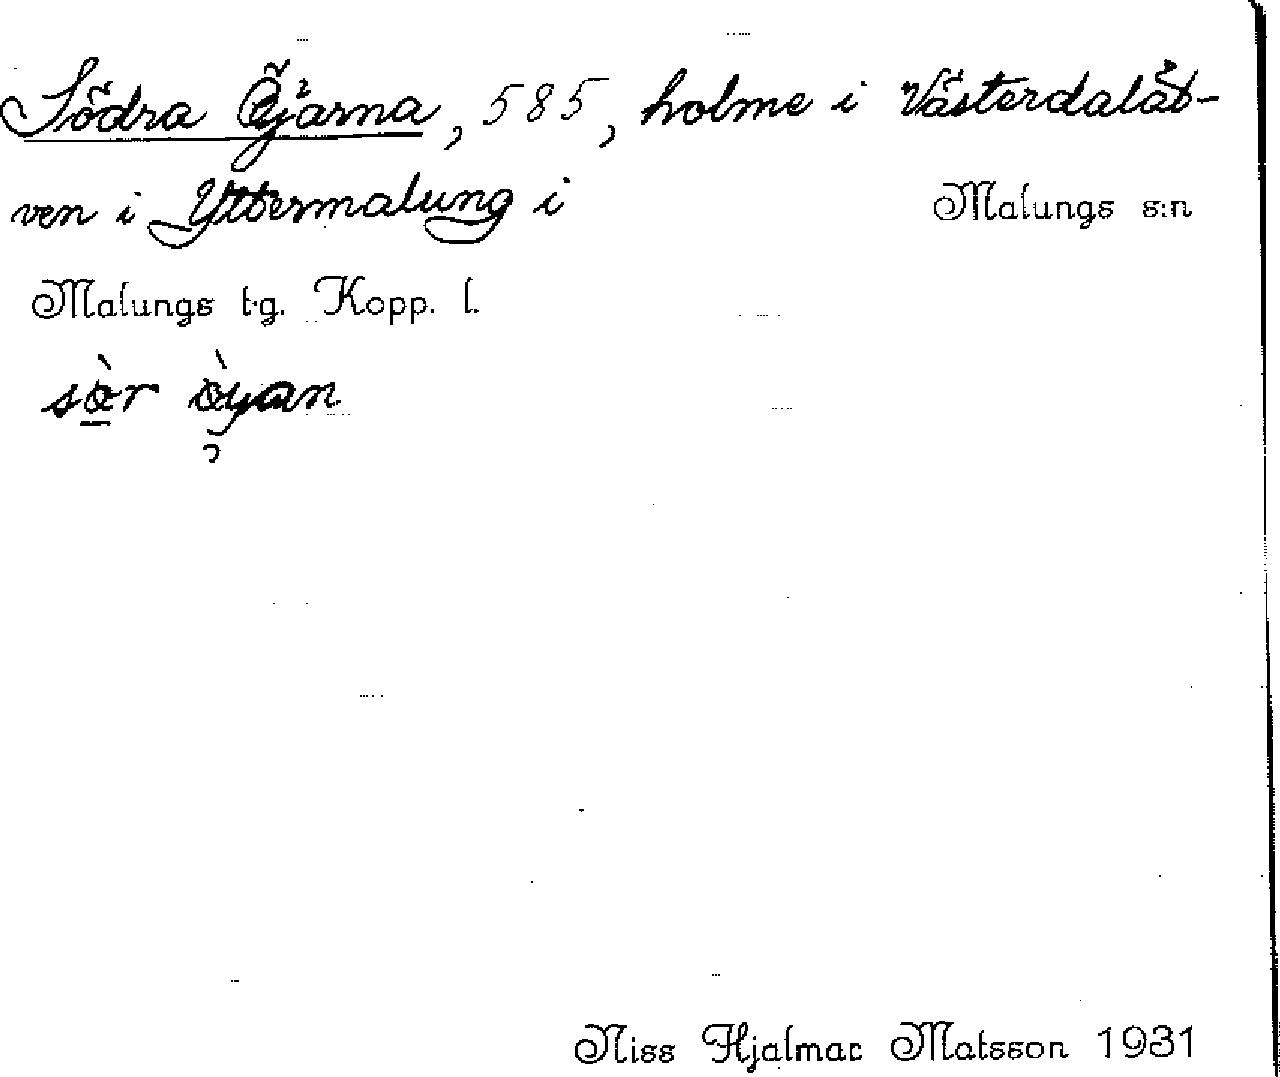 Södra Öjarna, 585, holme i Västerdaläl-
ven i Yttermalung i Malungs s:n
Malungs tg. Kopp. l.
sö̀r ö̀yan
Niss Hjalmar Matsson 1931